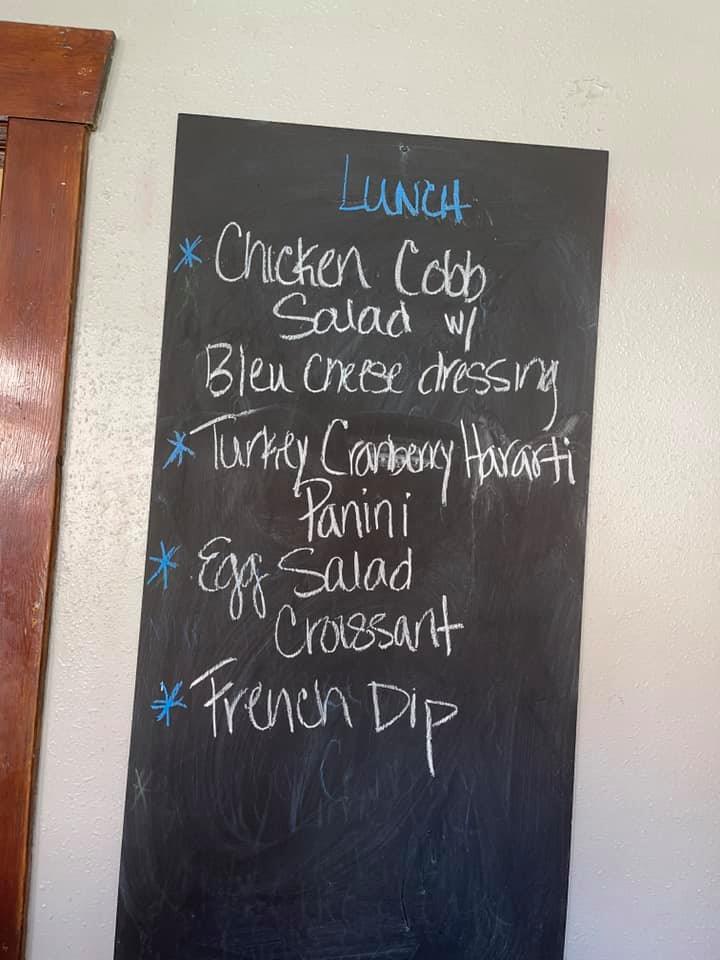 LUNCH
* Chicken Cobb
Salad w/
Bleu Cheese dressing
* Turkey Cranberry Havarti
Panini
* Egg Salad
Croissant
* French Dip